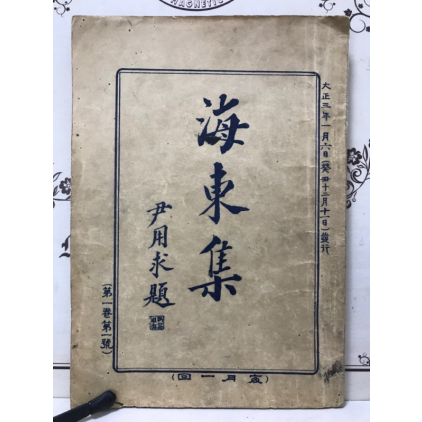 大正三年一月六日(癸丑十二月十一日)發行
海東集
尹用求題
(第一卷第一號)
(回一月每)
MAGNETIC